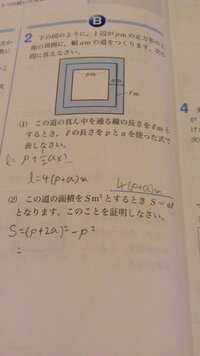 B
2 下の図のように, 1辺がpmの正方形の
地の周囲に, 幅amの道をつくります。次の
問に答えなさい。
pm
am
ℓm
(1) この道の真ん中を通る線の長さをℓmと
するとき, ℓの長さをpとaを使った式で
表しなさい。
ℓ=4(p+a)m
4(p+a)m
(2) この道の面積をSm²とするとき S=aℓ
となります。このことを証明しなさい。
S=(p+2a)²-p²
=
4